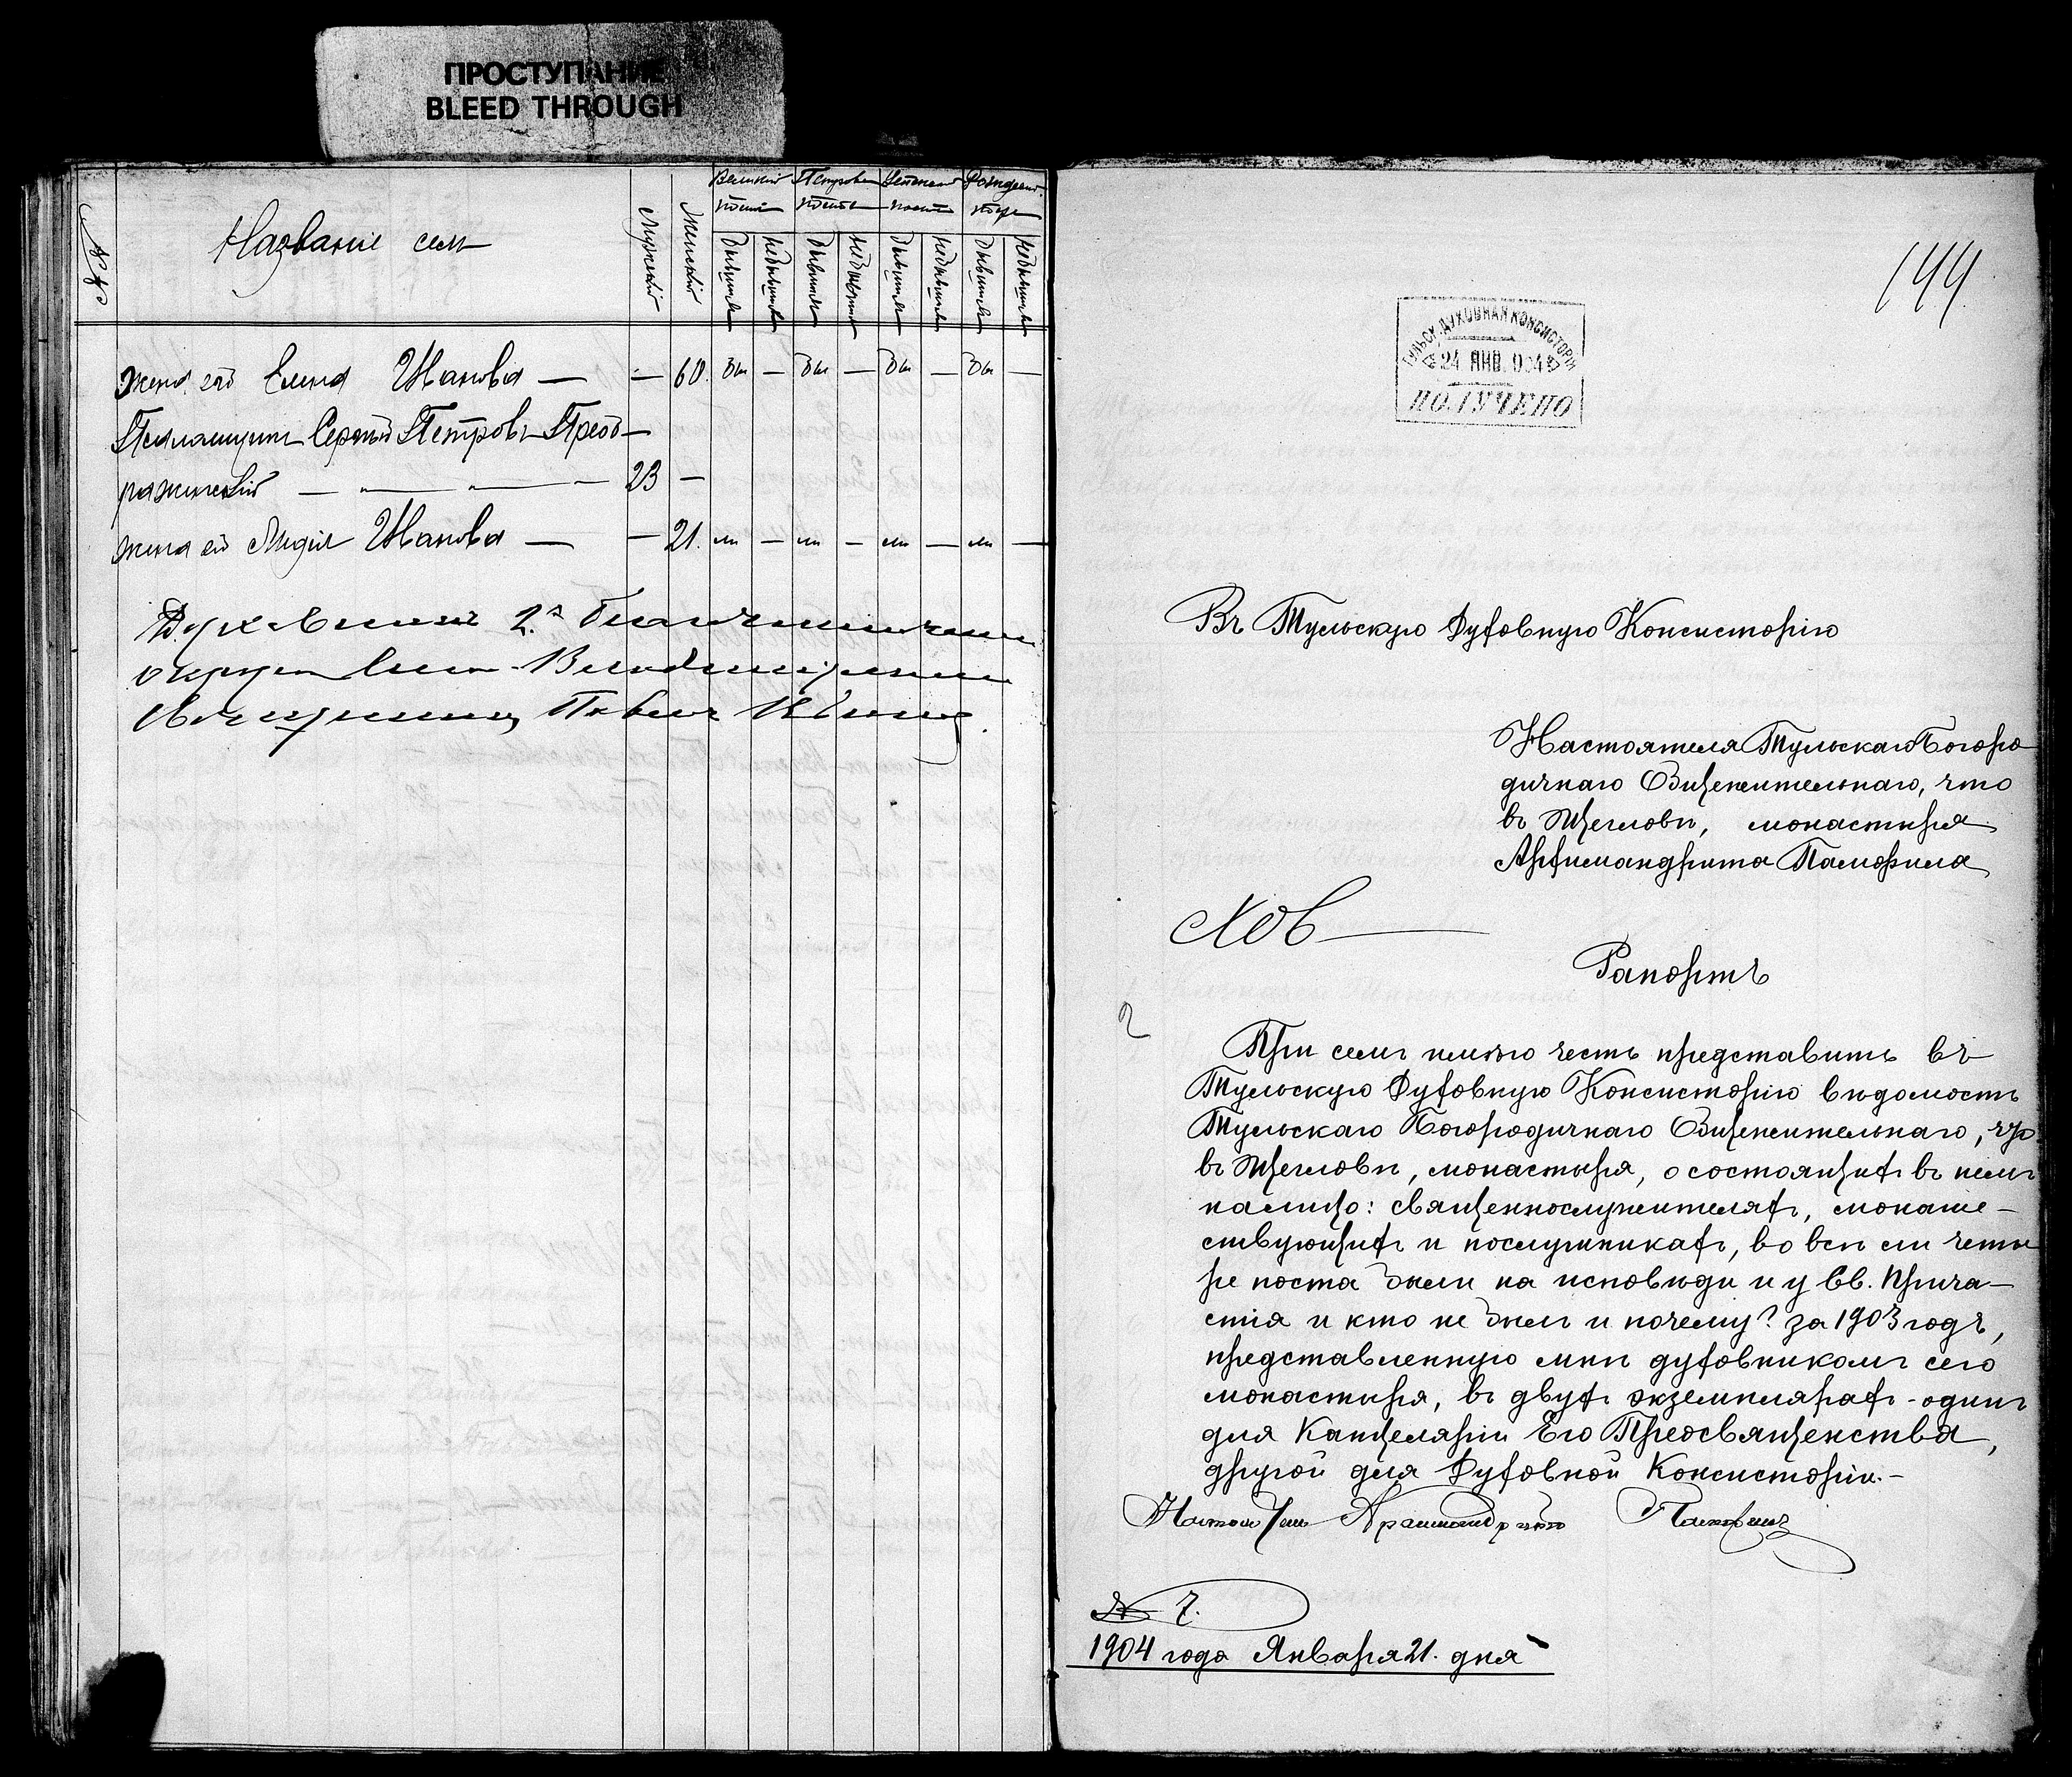 ПРОСТУПАНИЕ
BLEED THROUGH
№
Названіе сел
Мужескій
Женскій
Великій постъ
Петровъ постъ
Успенскій постъ
Рождеств. постъ
бывшіе
небывшіе
бывшіе
небывшіе
бывшіе
небывшіе
бывшіе
небывшіе
жена его Елена Иванова — — 60. бы — бы — бы — бы —
Псаломщикъ Сергѣй Петровъ Преоб-
раженскій — 23 —
жена его Лидія Иванова — — 21. — — — —
Духовникъ 2го благочинническ
округа села
священникъ Павелъ
144
ТУЛЬСК. ДУХОВНАЯ КОНСИСТОРІЯ
24 ЯНВ. 904
ПОЛУЧЕНО
Въ Тульскую Духовную Консисторію
Настоятеля Тульскаго Богоро
дичнаго Общежительнаго, что
въ Щегловѣ, монастыря
Архимандрита Памфила
Рапортъ
При семъ имѣю честь представить въ
Тульскую Духовную Консисторію вѣдомость
Тульскаго Богородичнаго Общежительнаго, что
въ Щегловѣ, монастыря, о состоящихъ въ немъ
налицо: священнослужителяхъ, монаше-
ствующихъ и послушникахъ, во всѣ ли четы
ре поста были на исповѣди и у Св. Прича-
стія и кто не былъ и почему? за 1903 годъ,
представленную мнѣ духовникомъ сего
монастыря, въ двухъ экземплярахъ - одинъ
для Канцеляріи Его Преосвященства,
другой для Духовной Консисторіи.-
Настоятель Архимандритъ Памфилъ
№ 7.
1904 года Января 21. дня